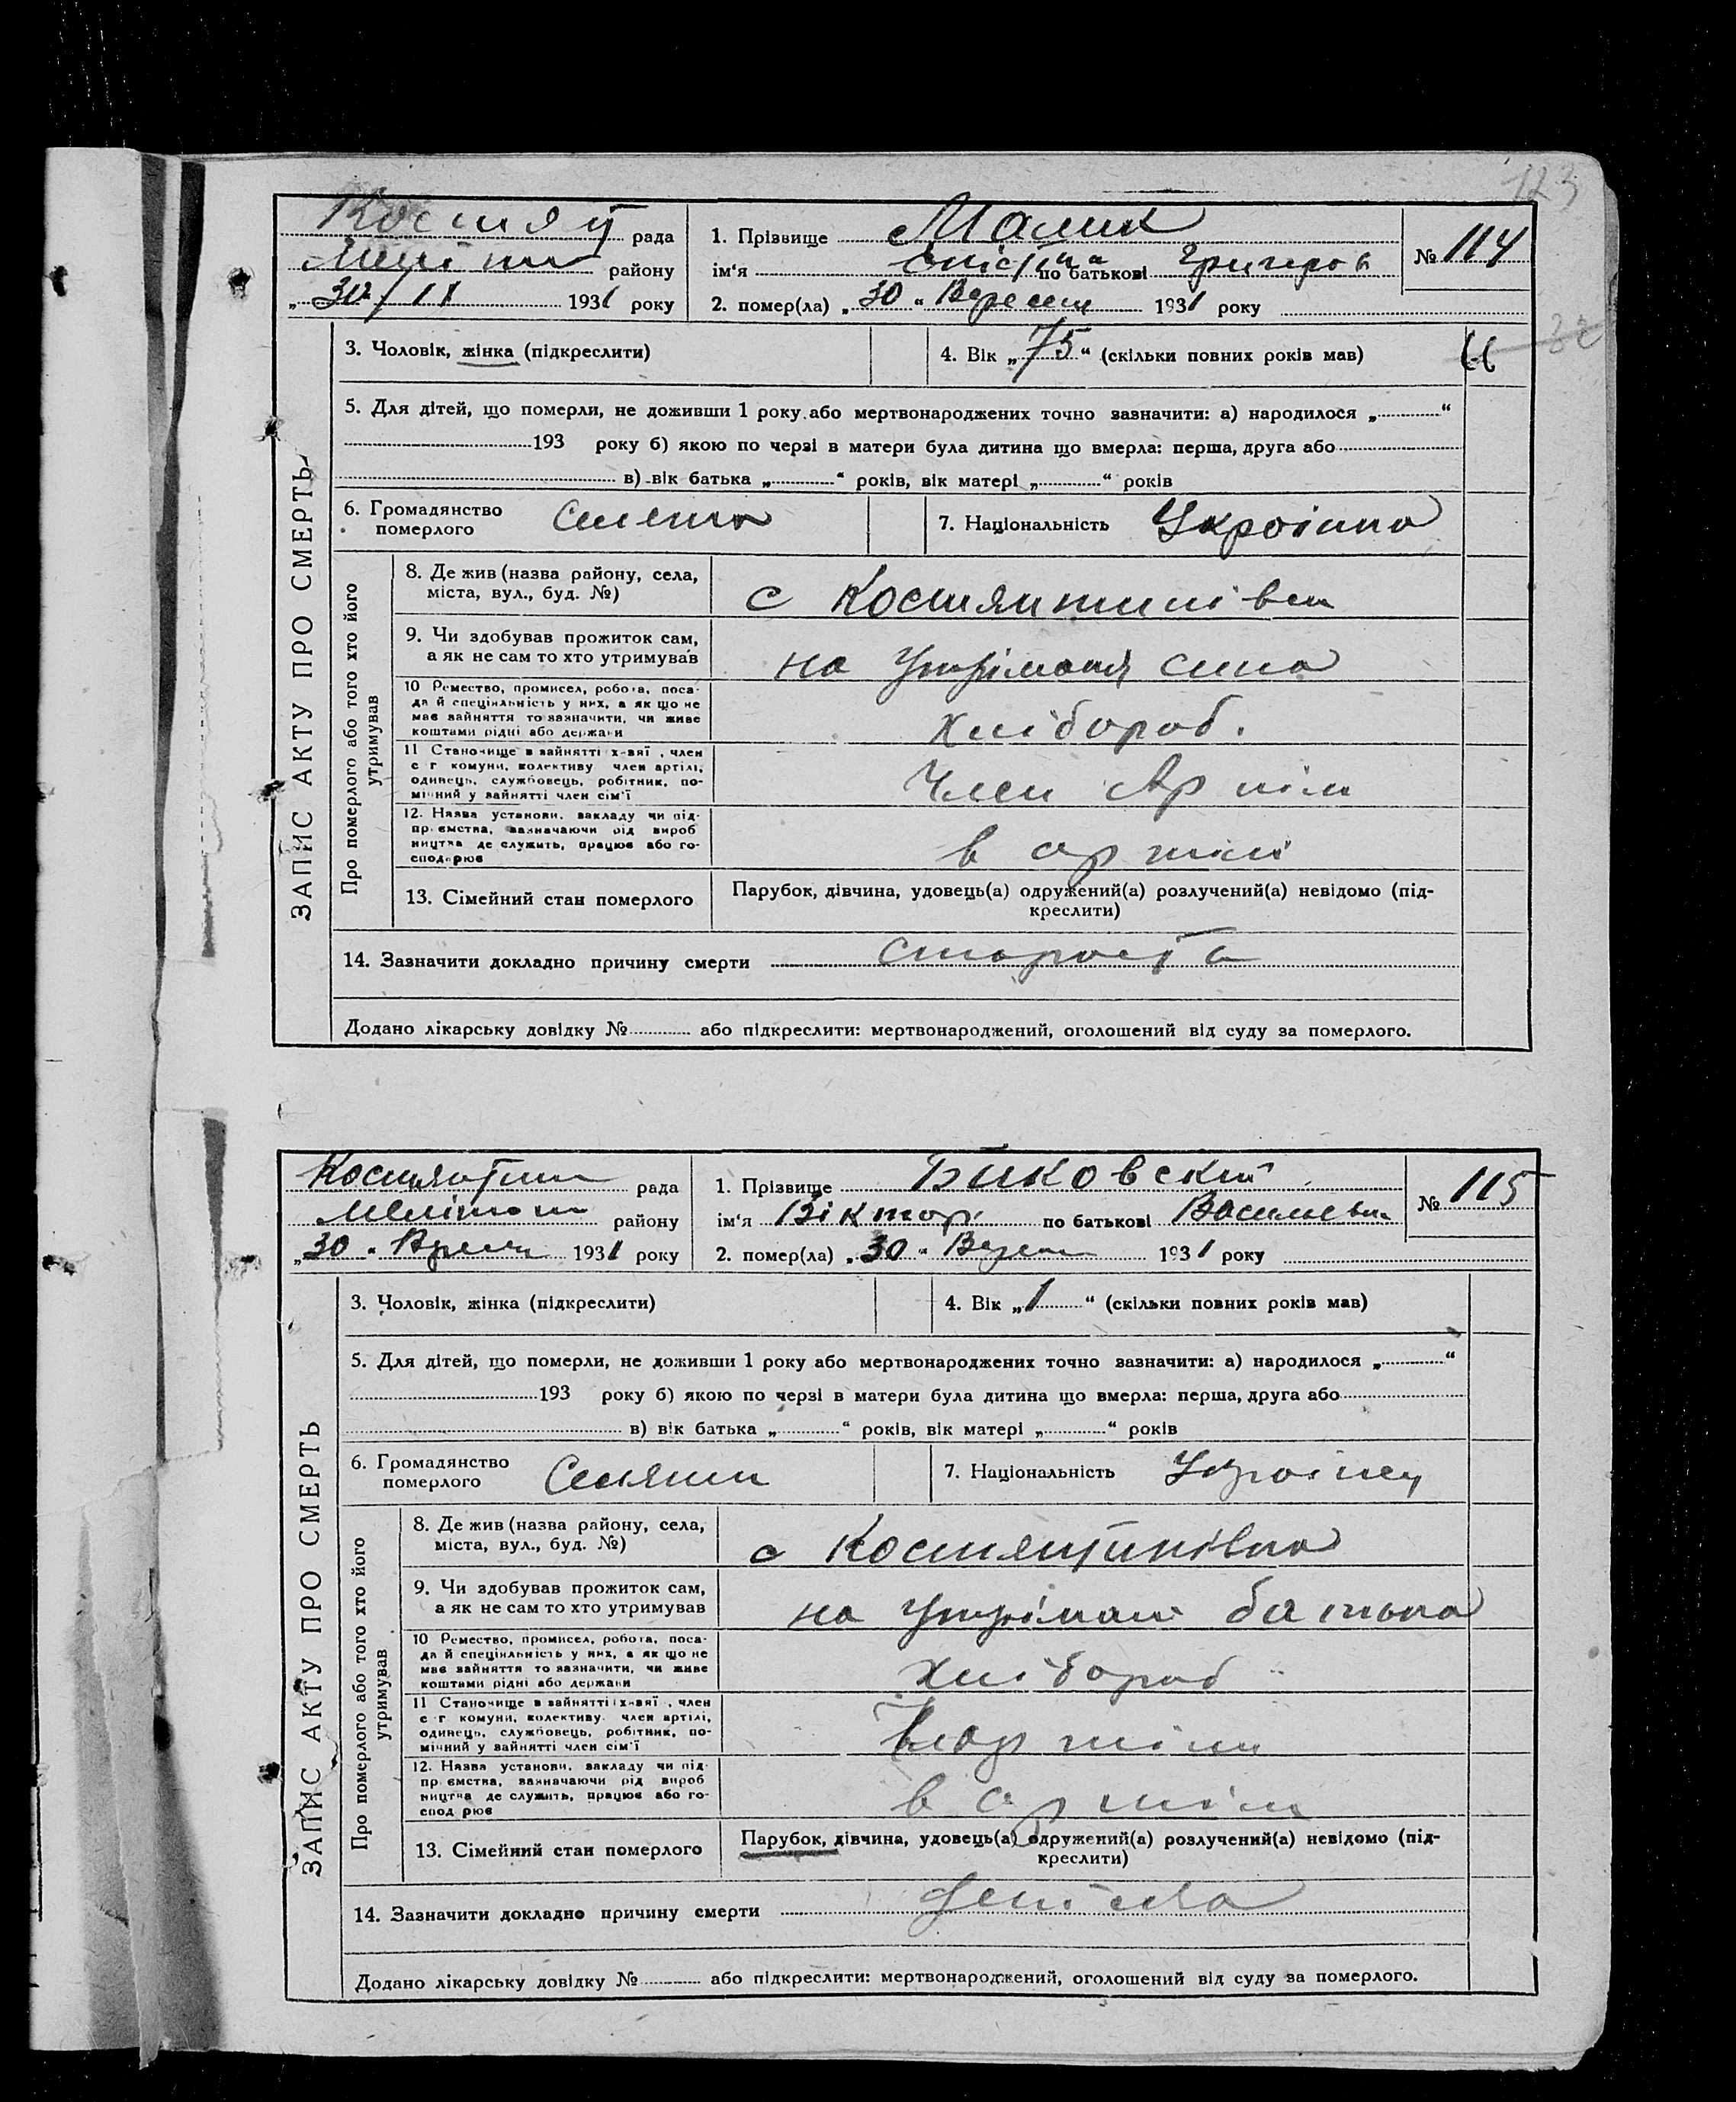 123
Костян рада
Меліт району
„ 30/IX 1931 року
1. Прізвище Малик
ім'я по батькові Григоров
2. помер(ла) „ 30 " Вересня 1931 року
№ 114
3. Чоловік, жінка (підкреслити)
4. Вік „ 75 " (скільки повних років мав)
5. Для дітей, що померли, не доживши 1 року або мертвонароджених точно зазначити: а) народилося „ "
193 року б) якою по черзі в матери була дитина що вмерла: перша, друга або
в) вік батька „ " років, вік матері „ " років
6. Громадянство
померлого
Селянка
7. Національність Українка
ЗАПИС АКТУ ПРО СМЕРТЬ
Про померлого або того хто його
утримував
8. Де жив (назва району, села,
міста, вул., буд. №)
с Костянтинівка
9. Чи здобував прожиток сам,
а як не сам то хто утримував
на утріманя сина
10 Ремество, промисел, робота, поса-
да й спеціяльність у них, а як що не
має зайняття то зазначити, чи живе
коштами рідні або держави
хлібороб.
11 Становище в зайнятті х-вяї, член
с г комуни, колективу член артілі,
одинець, службовець, робітник, по-
мічний у зайнятті член сім'ї
Член Артіли
12. Назва установи, закладу чи під-
пр ємства, зазначаючи рід вироб
ництва де служить, працює або го-
сподарює
в артілі
13. Сімейний стан померлого
Парубок, дівчина, удовець(а) одружений(а) розлучений(а) невідомо (під-
креслити)
14. Зазначити докладно причину смерти
Додано лікарську довідку № або підкреслити: мертвонароджений, оголошений від суду за померлого.
Костянтин рада
Мелітоп району
„ 30 " 1931 року
1. Прізвище Биковский
ім'я Віктор по батькові Васильевич
2. помер(ла) „ 30 " 1931 року
№ 115
3. Чоловік, жінка (підкреслити)
4. Вік „ 1 " (скільки повних років мав)
5. Для дітей, що померли, не доживши 1 року або мертвонароджених точно зазначити: а) народилося „ "
193 року б) якою по черзі в матери була дитина що вмерла: перша, друга або
в) вік батька „ " років, вік матері „ " років
6. Громадянство
померлого
Селянин
7. Національність Українец
ЗАПИС АКТУ ПРО СМЕРТЬ
Про померлого або того хто його
утримував
8. Де жив (назва району, села,
міста, вул., буд. №)
с Костянтинівка
9. Чи здобував прожиток сам,
а як не сам то хто утримував
на утріман батька
10 Ремество, промисел, робота, поса-
да й спеціяльність у них, а як що не
має зайняття то зазначити, чи живе
коштами рідні або держави
хлібороб
11 Становище в зайнятті х-вяї, член
с г комуни, колективу член артілі,
одинець, службовець, робітник, по-
мічний у зайнятті член сім'ї
12. Назва установи, закладу чи під-
пр ємства, зазначаючи рід вироб
ництва де служить, працює або го-
спод рює
в артіли
13. Сімейний стан померлого
Парубок, дівчина, удовець(а) одружений(а) розлучений(а) невідомо (під-
креслити)
14. Зазначити докладно причину смерти
Додано лікарську довідку № або підкреслити: мертвонароджений, оголошений від суду за померлого.